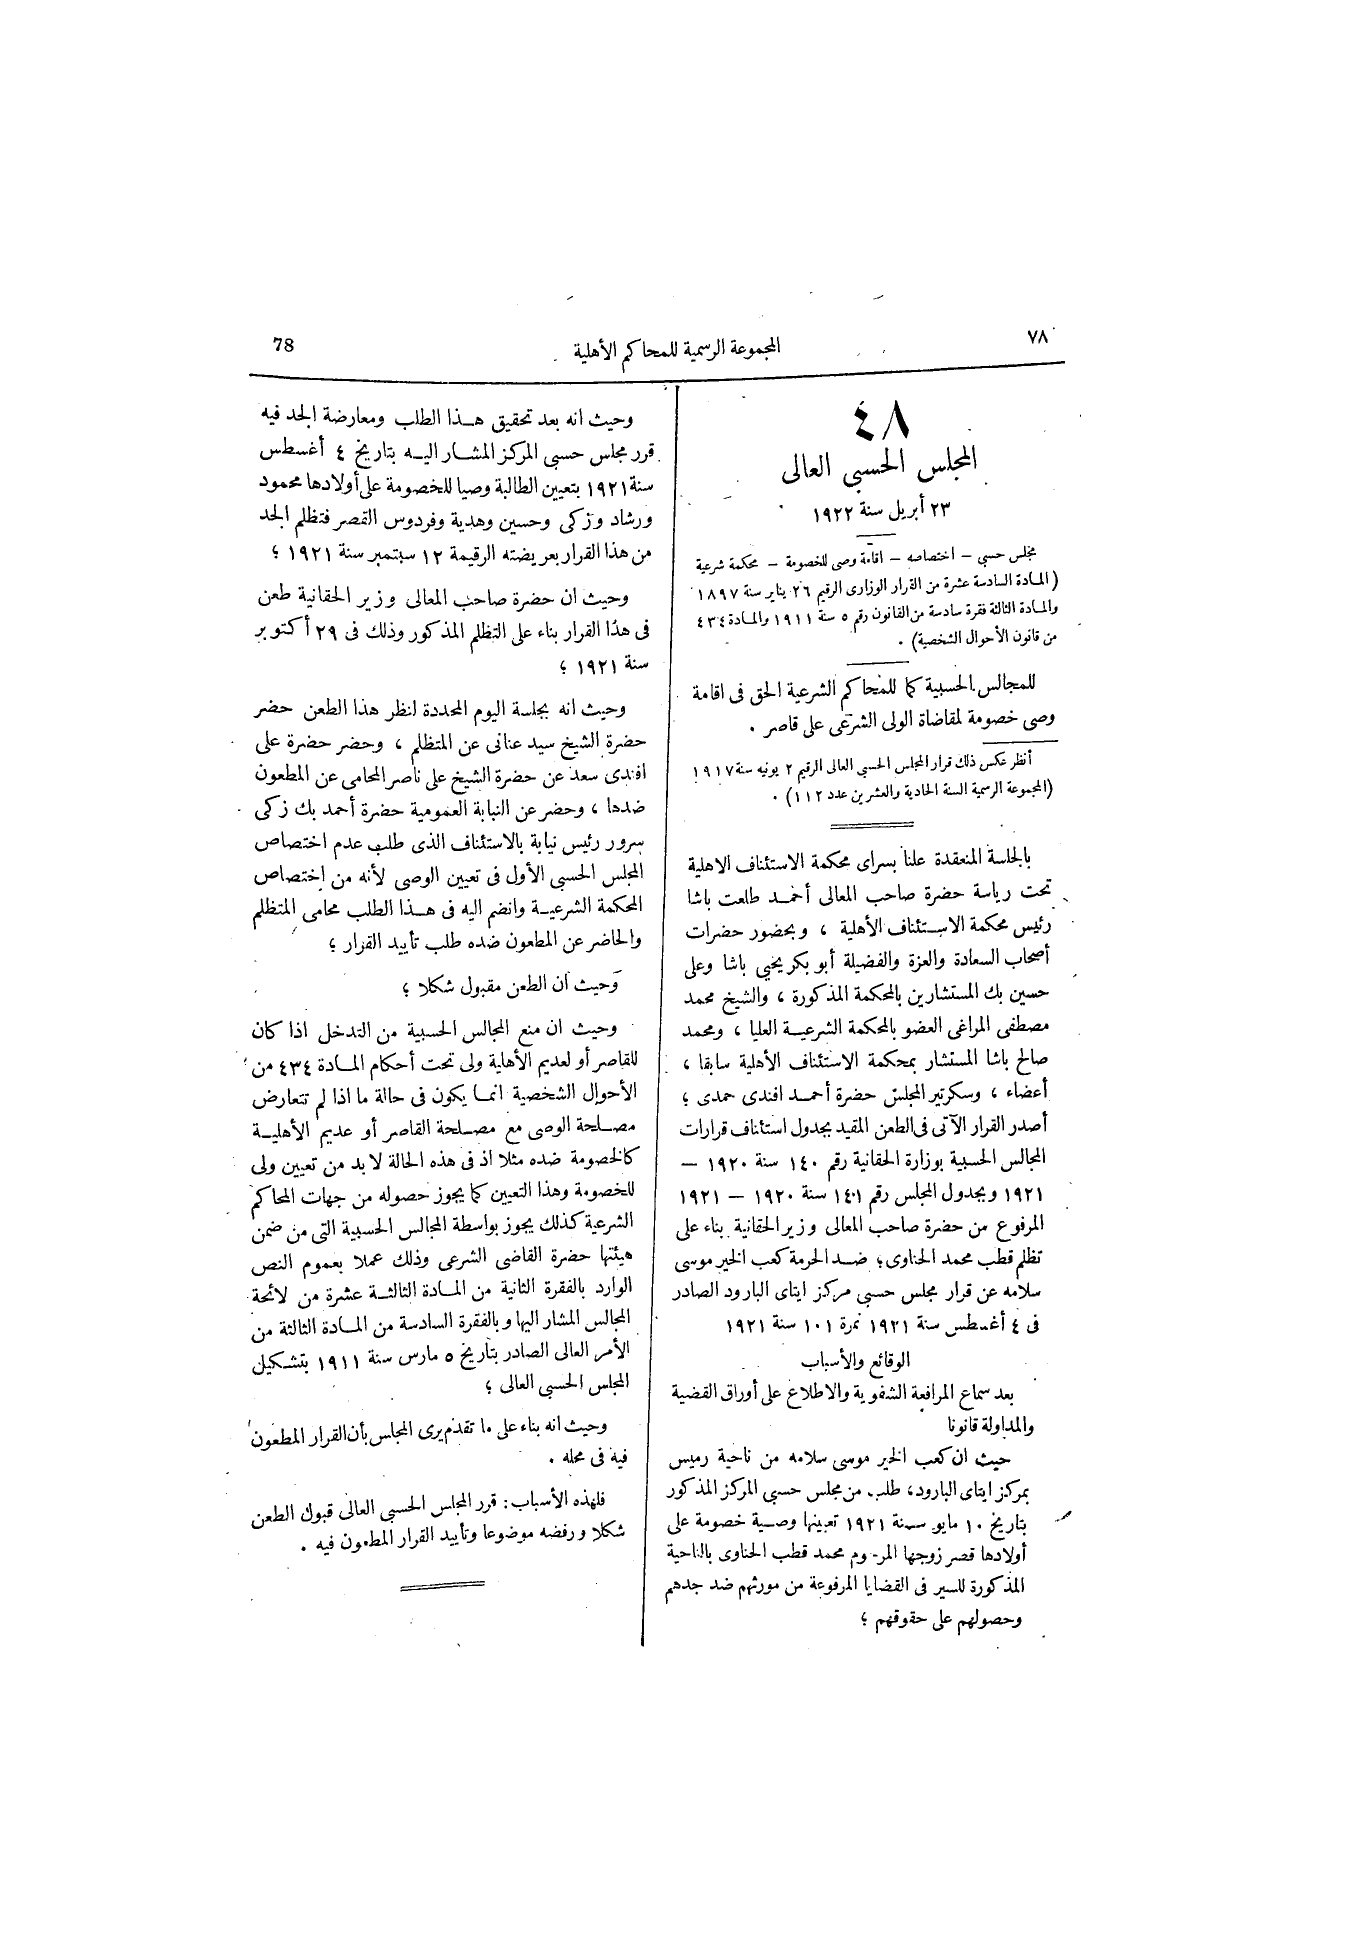 ٧٨
المجموعة الرسمية للمحاكم الأهلية
78
٤٨
المجلس الحسبي العالى
٢٣ أبريل سنة ١٩٢٢
مجلس حسبي – اختصاصه – اقامة وصى للخصومة – محكمة شرعية
(المادة السادسة عشرة من القرار الوزارى الرقيم ٢٦ يناير سنة ١٨٩٧
والمادة الثالثة فقرة سادسة من القانون رقم ٥ سنة ١٩١١ والمادة ٤٣٤
من قانون الأحوال الشخصية) .
للمجالس الحسبية كما للمحاكم الشرعية الحق فى اقامة
وصى خصومة لمقاضاة الولى الشرعى على قاصر .
أنظر عكس ذلك قرار المجلس الحسبي العالى الرقيم ٢ يونيه سنة ١٩١٧
(المجموعة الرسمية السنة الحادية والعشرين عدد ١١٢) .
بالجلسة المنعقدة علنا بسراى محكمة الاستئناف الاهلية
تحت رياسة حضرة صاحب المعالى أحمد طلعت باشا
رئيس محكمة الاستئناف الأهلية ، وبحضور حضرات
أصحاب السعادة والعزة والفضيلة أبو بكر يحيي باشا وعلى
حسين بك المستشارين بالمحكمة المذكورة ، والشيخ محمد
مصطفى المراغى العضو بالمحكمة الشرعية العليا ، ومحمد
صالح باشا المستشار بمحكمة الاستئناف الأهلية سابقا ،
أعضاء ، وسكرتير المجلس حضرة أحمد افندى حمدى ؛
أصدر القرار الآتى فى الطعن المقيد بجدول استئناف قرارات
المجالس الحسبية بوزارة الحقانية رقم ١٤٠ سنة ١٩٢٠ –
١٩٢١ وبجدول المجلس رقم ١٤١ سنة ١٩٢٠ – ١٩٢١
المرفوع من حضرة صاحب المعالى وزير الحقانية بناء على
تظلم قطب محمد الحناوى ؛ ضد الحرمة كعب الخير موسى
سلامه عن قرار مجلس حسبي مركز ايتاى البارود الصادر
فى ٤ أغسطس سنة ١٩٢١ نمرة ١٠١ سنة ١٩٢١
الوقائع والأسباب
بعد سماع المرافعة الشفوية والاطلاع على أوراق القضية
والمداولة قانونا
حيث ان كعب الخير موسى سلامه من ناحية رميس
بمركز ايتاى البارود، طلبت من مجلس حسبي المركز المذكور
بتاريخ ١٠ مايو سنة ١٩٢١ تعيينها وصية خصومة على
أولادها قصر زوجها المرحوم محمد قطب الحناوى بالناحية
المذكورة للسير فى القضايا المرفوعة من مورثهم ضد جدهم
وحصولهم على حقوقهم ؛
وحيث انه بعد تحقيق هذا الطلب ومعارضة الجد فيه
قرر مجلس حسبي المركز المشار اليه بتاريخ ٤ أغسطس
سنة ١٩٢١ بتعيين الطالبة وصيا للخصومة على أولادها محمود
ورشاد وزكى وحسين وهدية وفردوس القصر فتظلم الجد
من هذا القرار بعريضته الرقيمة ١٢ سبتمبر سنة ١٩٢١ ؛
وحيث ان حضرة صاحب المعالى وزير الحقانية طعن
فى هذا القرار بناء على التظلم المذكور وذلك فى ٢٩ أكتوبر
سنة ١٩٢١ ؛
وحيث انه بجلسة اليوم المحددة لنظر هذا الطعن حضر
حضرة الشيخ سيد عنانى عن المتظلم ، وحضر حضرة على
افندى سعد عن حضرة الشيخ على ناصر المحامى عن المطعون
ضدها ، وحضر عن النيابة العمومية حضرة أحمد بك زكى
سرور رئيس نيابة بالاستئناف الذى طلب عدم اختصاص
المجلس الحسبي الأول فى تعيين الوصى لأنه من إختصاص
المحكمة الشرعية وانضم اليه فى هذا الطلب محامى المتظلم
والحاضر عن المطعون ضده طلب تأييد القرار ؛
وحيث ان الطعن مقبول شكلا ؛
وحيث ان منع المجالس الحسبية من التدخل اذا كان
للقاصر أو لعديم الأهلية ولى تحت أحكام المادة ٤٣٤ من
الأحوال الشخصية انما يكون فى حالة ما اذا لم تتعارض
مصلحة الوصى مع مصلحة القاصر أو عديم الأهلية
كالخصومة ضده مثلا اذ فى هذه الحالة لا بد من تعيين ولى
للخصومة وهذا التعيين كما يجوز حصوله من جهات المحاكم
الشرعية كذلك يجوز بواسطة المجالس الحسبية التى من ضمن
هيئتها حضرة القاضى الشرعى وذلك عملا بعموم النص
الوارد بالفقرة الثانية من المادة الثالثة عشرة من لائحة
المجالس المشار اليها وبالفقرة السادسة من المادة الثالثة من
الأمر العالى الصادر بتاريخ ٥ مارس سنة ١٩١١ بتشكيل
المجلس الحسبي العالى ؛
وحيث انه بناء على ما تقدم يرى المجلس بأن القرار المطعون
فيه فى محله .
فلهذه الأسباب : قرر المجلس الحسبي العالى قبول الطعن
شكلا ورفضه موضوعا وتأييد القرار المطعون فيه .